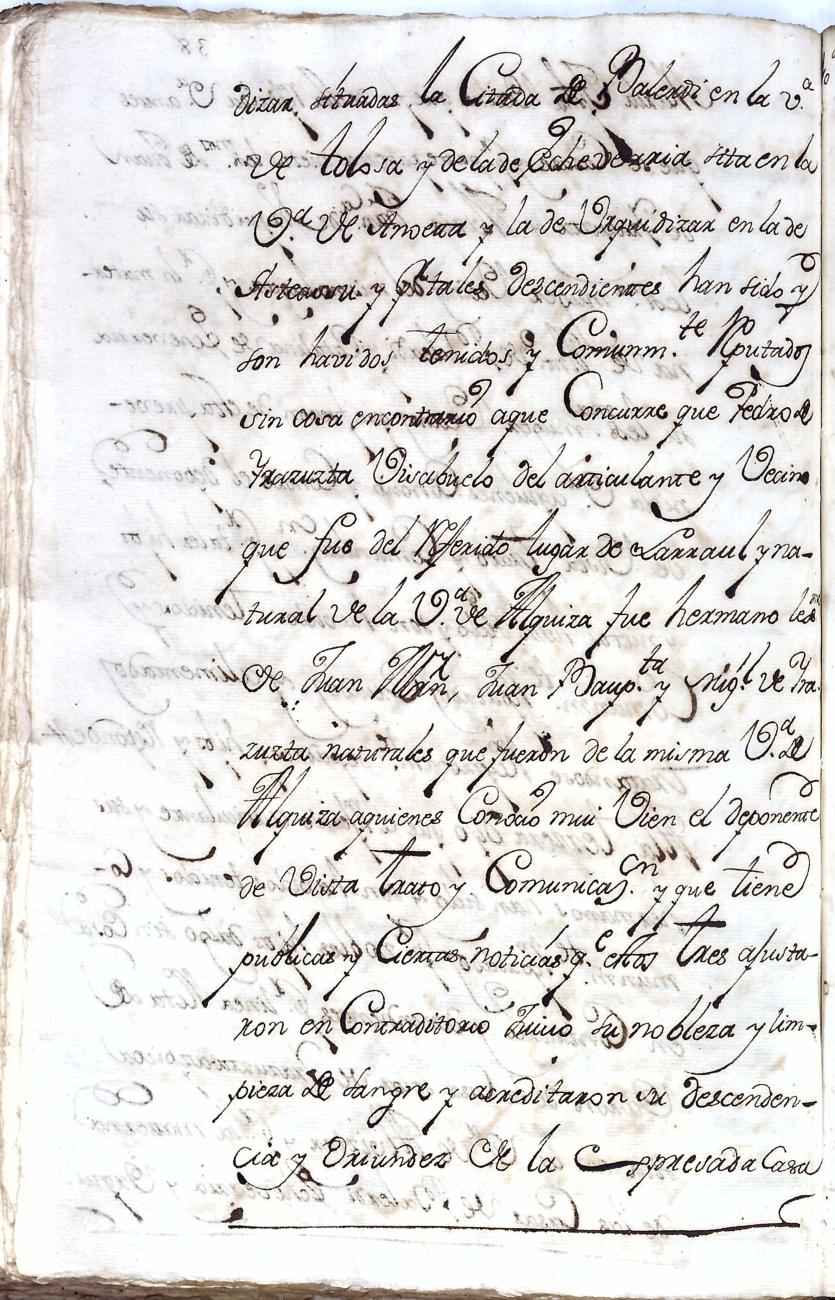 dizar, situadas la Citada de Balerdi en la v.ª
de tolosa y de la de Echeverria sita en la
V.ª de Anoeta y la de Urquidizar en la de
Asteasu y p.r tales descendientes han sido y
son havidos tenidos y Comunm.te Rputados
sin cosa encontrario aque Concurre que Pedro de
Yrazuzta Visabuelo del articulante y Vecino
que fue del Rferido lugar de Larraul y na-
tural de la V.ª de Alquiza fue hermano
de Juan Mrn, Juan Baup.ta y Mig.l de Yra-
zuzta naturales que fueron de la misma V.ª de
Alquiza aquienes Conocio mui Vien el deponente
de Vista trato y Comunicaz.on y que tiene
publicas y Ciertas noticias q.e estos tres ajusta-
ron en Contraditorio Juicio su nobleza y lim-
pieza de sangre y acreditaron su descenden-
cia y Oriundez de la Espresada Casa